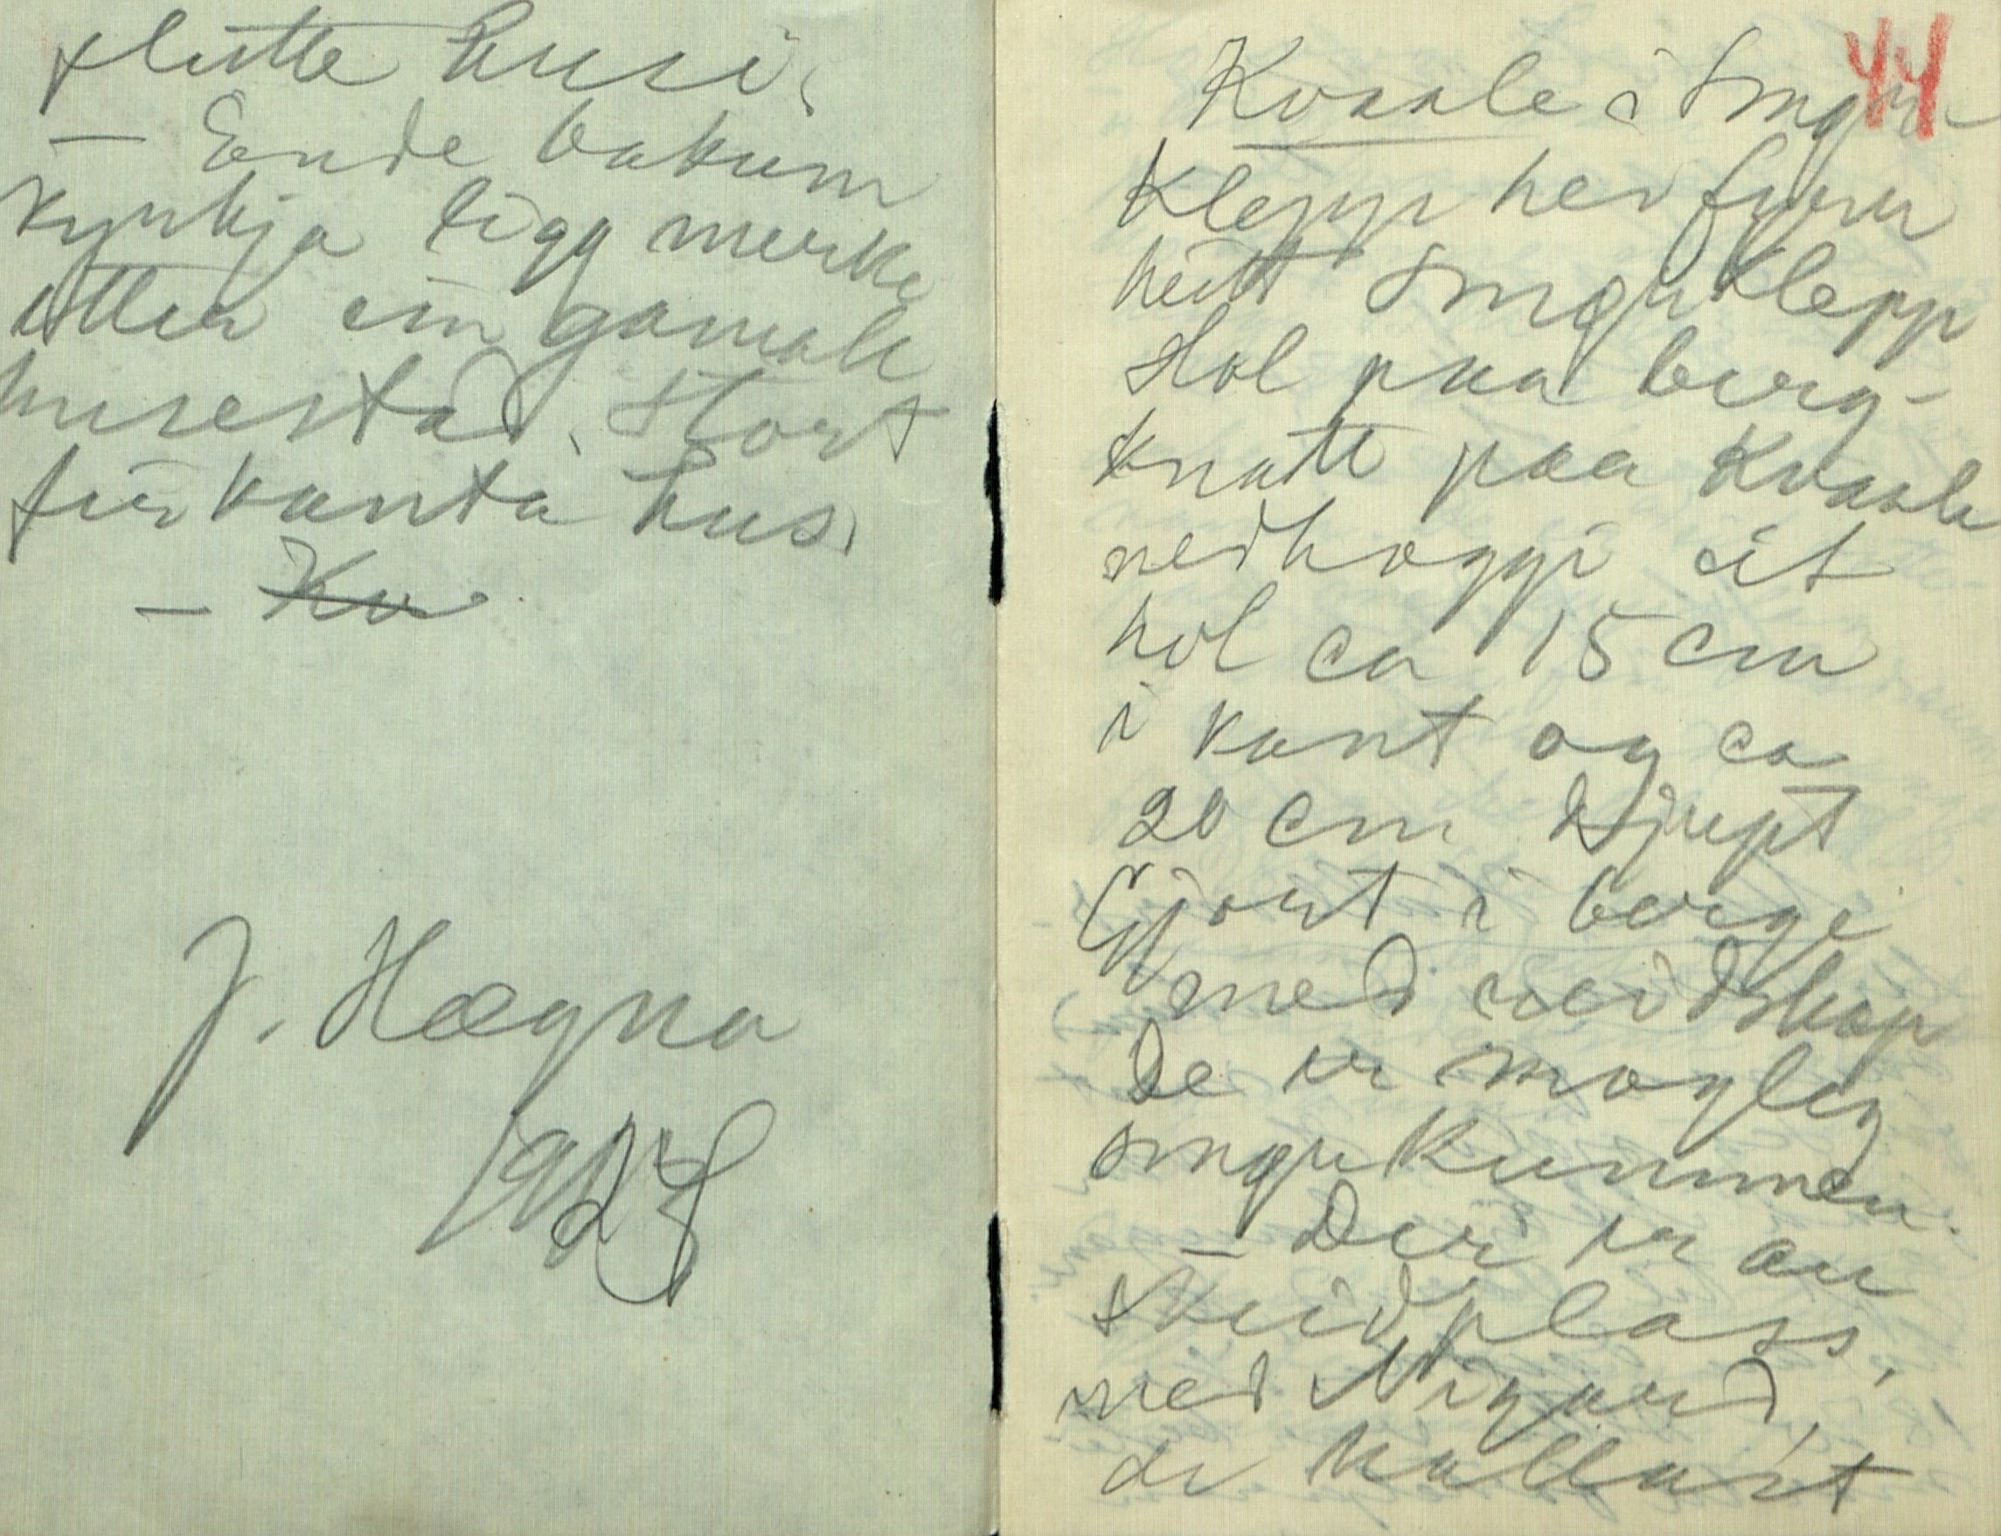 flutte husi.
— Ende bakum
kyrkja ligg merke
etter ein gamall
husestad. Stort
firkanta hus.
— Kv
J. Hægna
1924
44
Kvaale i Smør
klepp hev fyrr
heitt Smørklepp
Hol paa berg-
knatt paa Kvaale
nedhoggi eit
hol ca 15 cm
i kant og ca
20 cm djupt
Gjort i bergi
med reidskap
De er mogleg
smørkummen.
— Der er au
skeidplass,
ved Nigard,
de kallast